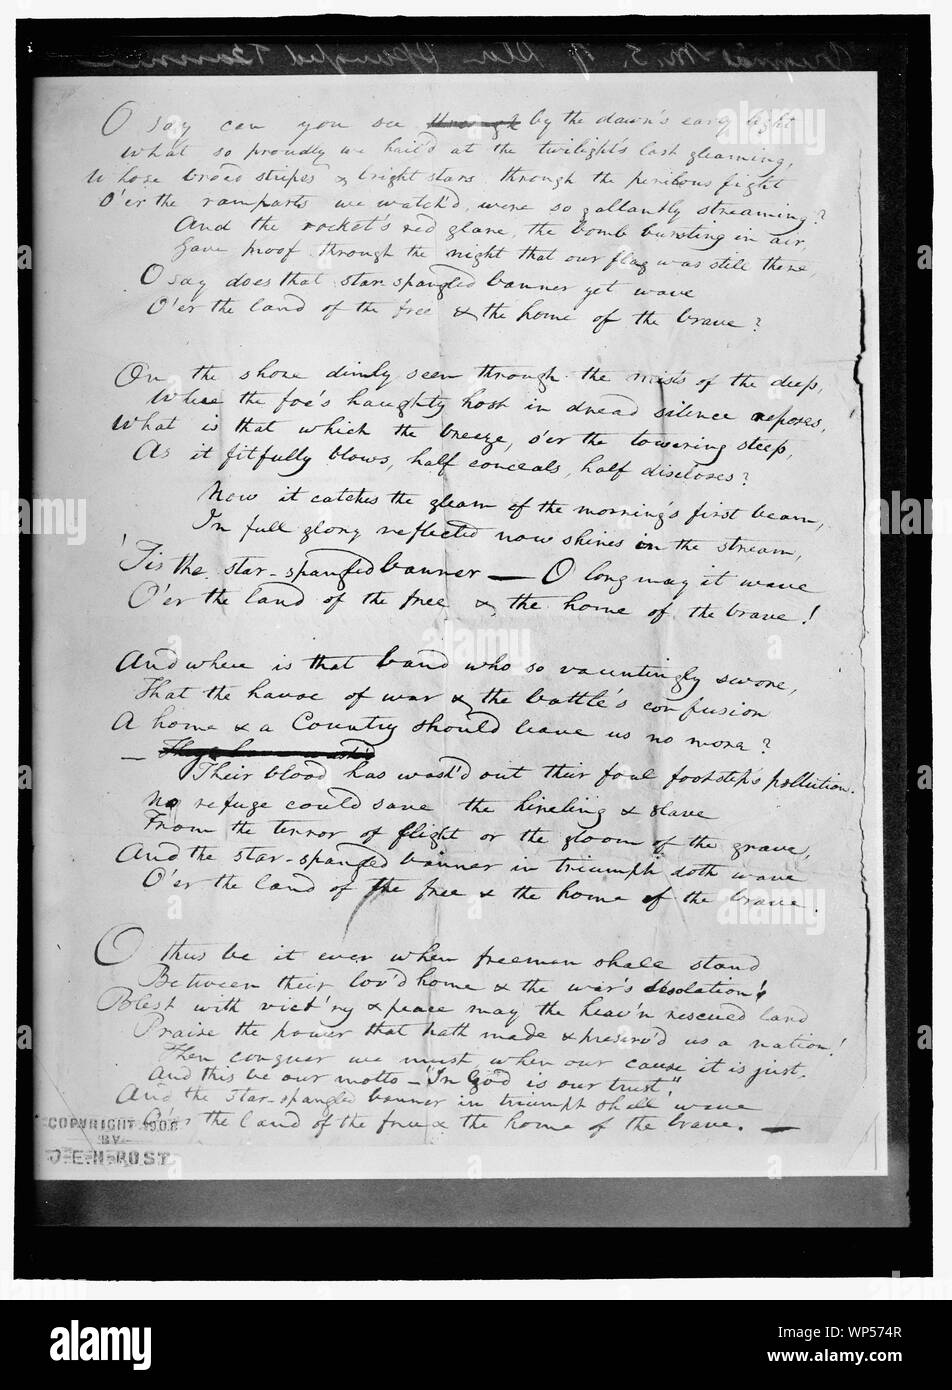 Original M.S. of Star Spangled Banner
O say can you see through by the dawn's early light
What so proudly we hail'd at the twilight's last gleaming,
Whose broad stripes & bright stars through the perilous fight
O'er the ramparts we watch'd, were so gallantly streaming?
And the rocket's red glare, the bomb bursting in air,
Gave proof through the night that our flag was still there,
O say does that star-spangled banner yet wave
O'er the land of the free & the home of the brave?
On the shore dimly seen through the mists of the deep,
Where the foe's haughty host in dread silence reposes,
What is that which the breeze, o'er the towering steep,
As it fitfully blows, half conceals, half discloses?
Now it catches the gleam of the morning's first beam,
In full glory reflected now shines in the stream,
'Tis the star-spangled banner — O long may it wave
O'er the land of the free & the home of the brave!
And where is that band who so vauntingly swore,
That the havoc of war & the battle's confusion
A home & a Country should leave us no more?
—
Their blood has wash'd out their foul footstep's pollution.
No refuge could save the hireling & slave
From the terror of flight or the gloom of the grave,
And the star-spangled banner in triumph doth wave
O'er the land of the free & the home of the brave.
O thus be it ever when freemen shall stand
Between their lov'd home & the war's desolation!
Blest with vict'ry & peace may the heav'n rescued land
Praise the power that hath made & preserv'd us a nation!
Then conquer we must, when our cause it is just,
And this be our motto — "In God is our trust"
And the star-spangled banner in triumph shall wave
O'er the land of the free & the home of the brave. —
COPYRIGHT 1906
BY
J.E.H. POST.
alamy
alamy
alamy
alamy
alamy
Image ID: WP574R
www.alamy.com